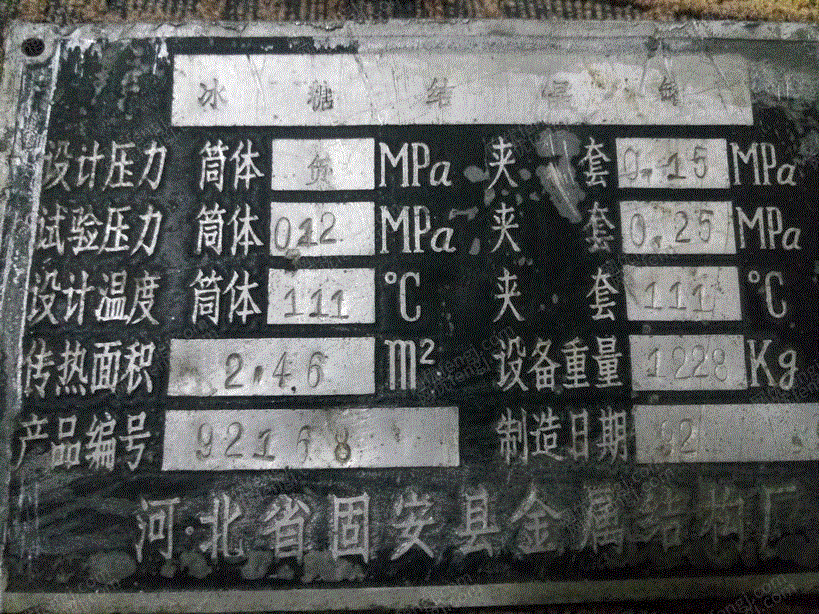 冰糖结晶锅
设计压力 筒体 负 MPa 夹套 0.15 MPa
试验压力 筒体 0.12 MPa 夹套 0.25 MPa
设计温度 筒体 111 ℃ 夹套 111 ℃
传热面积 2.46 m² 设备重量 1228 Kg
产品编号 92168 制造日期 92
河北省固安县金属结构厂